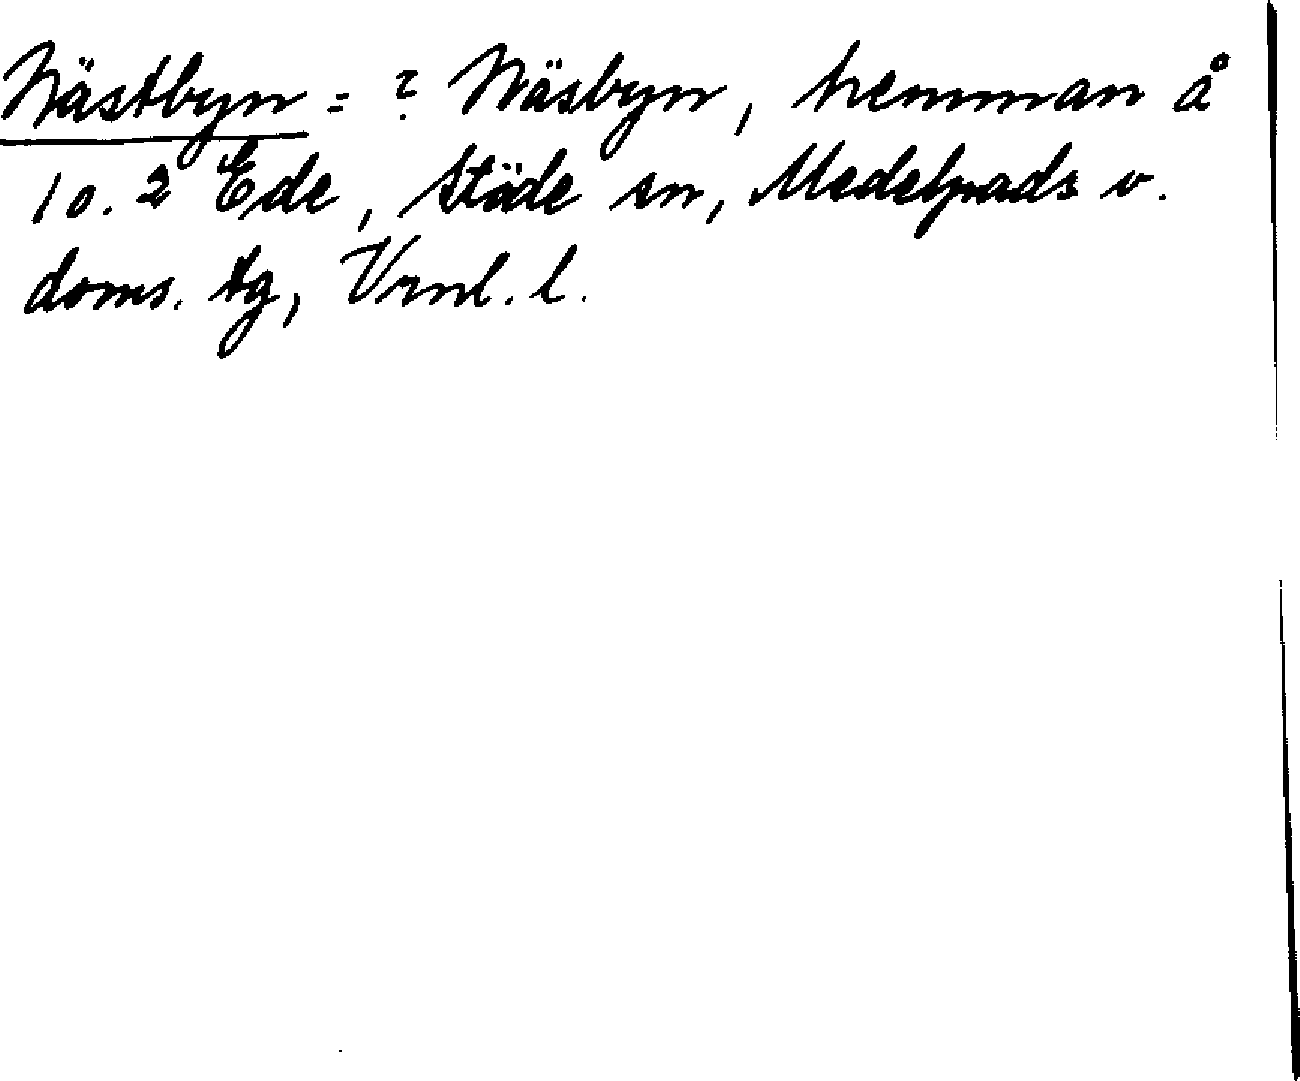 Nästbyn = ? Näsbyn, hemman å
1 o. 2 Ede, Stöde sn, Medelpads v.
doms. tg, Vrnl. l.